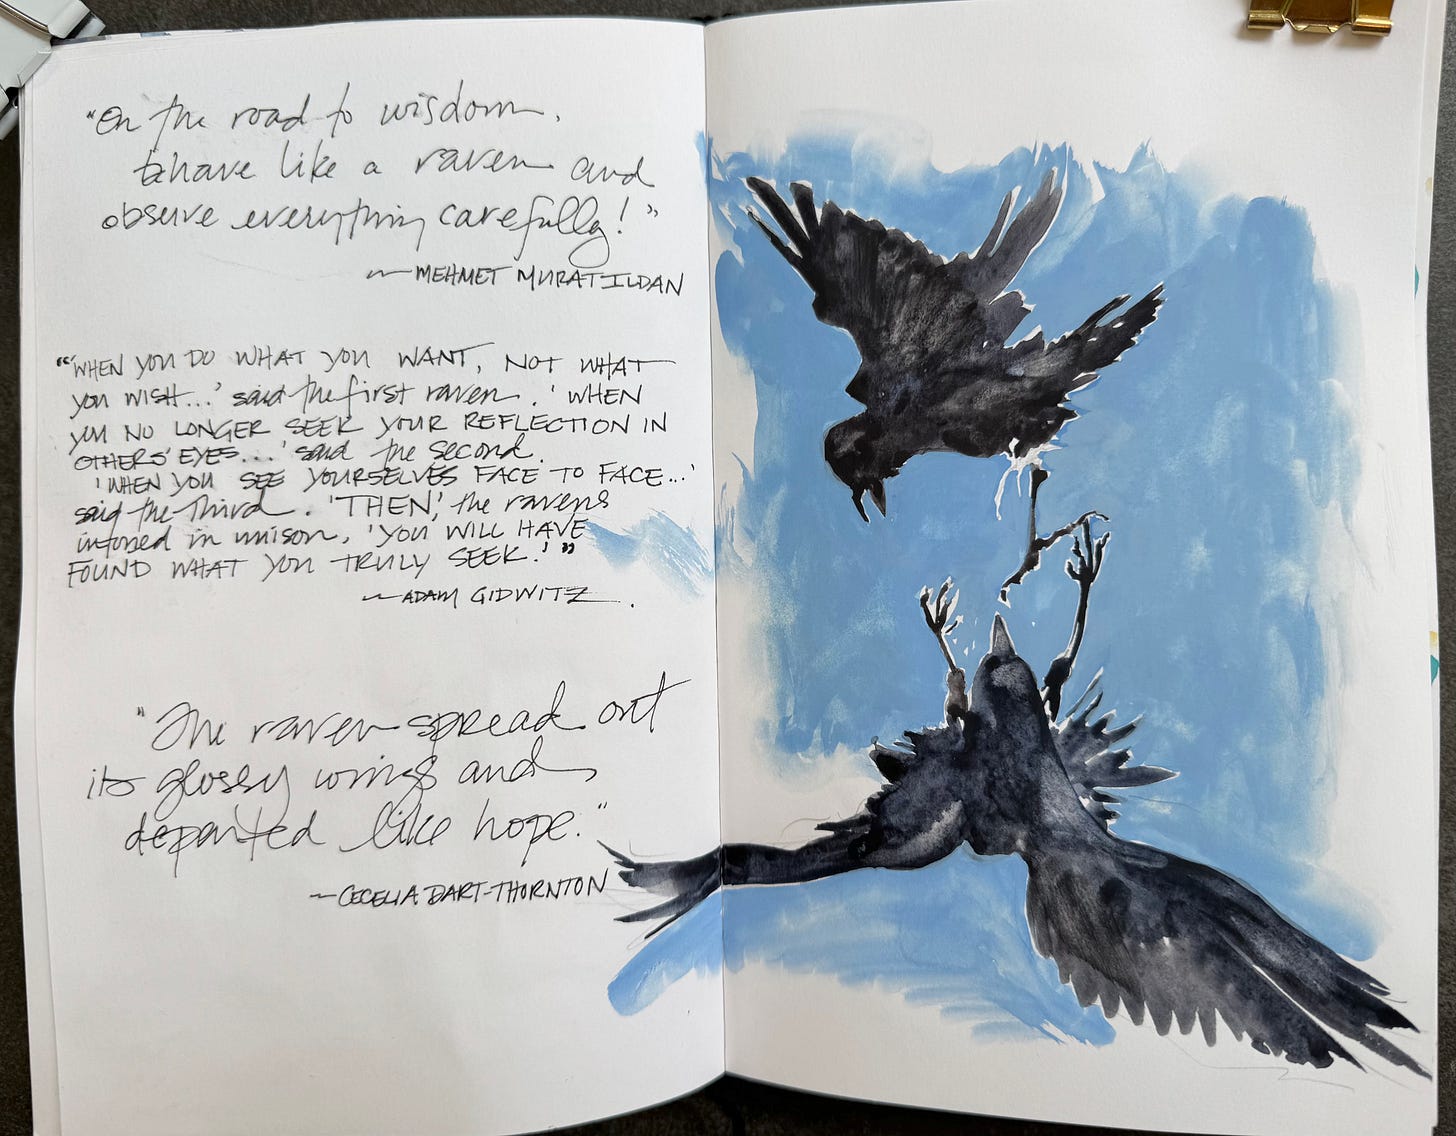 "On the road to wisdom,
behave like a raven and
observe everything carefully!"
~MEHMET MURAT ILDAN
"'WHEN YOU DO WHAT YOU WANT, NOT WHAT
YOU WISH...' said the first raven. 'WHEN
YOU NO LONGER SEEK YOUR REFLECTION IN
OTHERS' EYES...' said the second.
'WHEN YOU SEE YOURSELVES FACE TO FACE...'
said the third. 'THEN,' the ravens
intoned in unison, 'YOU WILL HAVE
FOUND WHAT YOU TRULY SEEK.'"
~ADAM GIDWITZ.
"The raven spread out
its glossy wings and
departed like hope."
~CECELIA DART-THORNTON